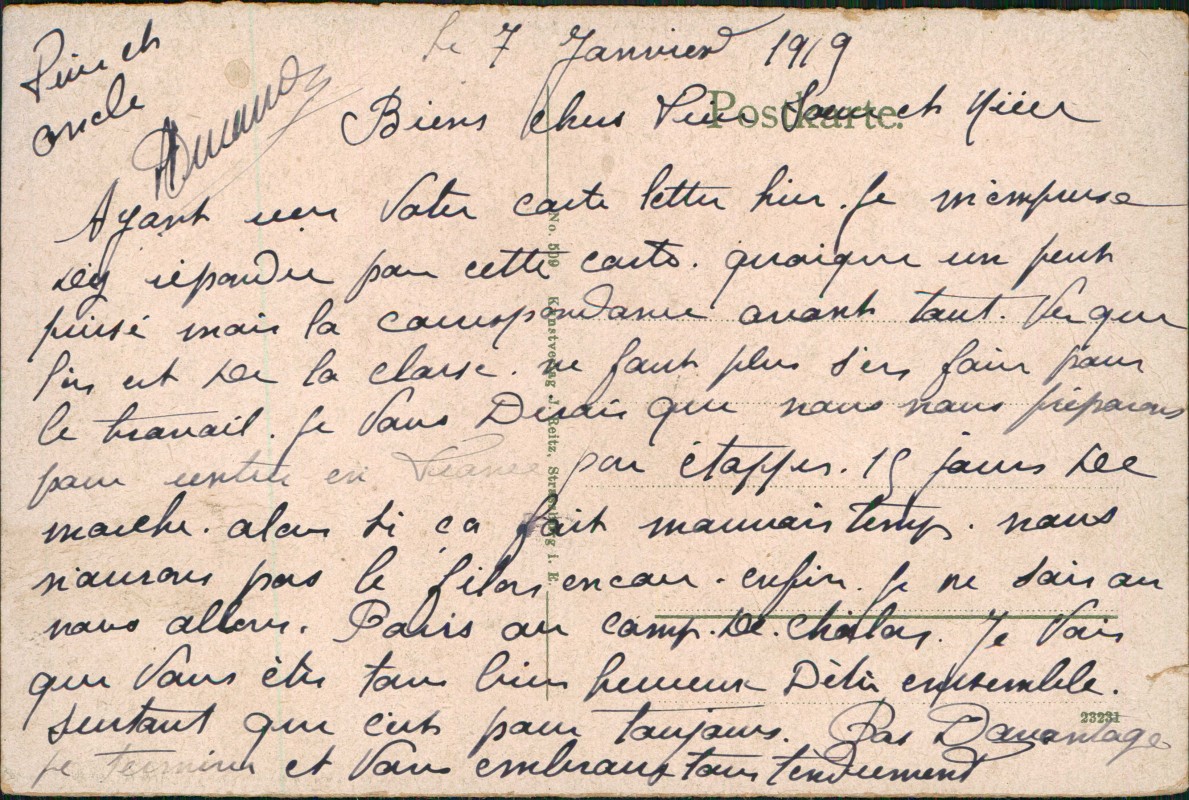 Le 7 Janvier 1919
Postkarte.
Biens chers Père Soeur et Nièce
Ayant reçu Votre carte lettre hier. Je m'empresse
d'ey répondre par cette carte. quoique un peut
pressé mais la correspondance avant tant. Vu que
l'on est De la classe. ne faut plus s'en fair pour
le travail. Je Vous Disais que nous nous préparons
pour rentrer en France par étappes. 15 jours De
marche. alors si ca fait mauvais temp. nous
n'aurons pas le filon encore. enfin. Je ne sais ou
nous allons. Paris ou camp. De. Chalons. Je Vois
que Vous êtes tous bien heureux D'être ensemble.
surtout que c'est pour toujours. Pas Davantage
je termine et Vous embrasse tous tendrement
Père et
oncle
No. 509 Kunstverlag J. Reitz, Strassburg i. E.
23231